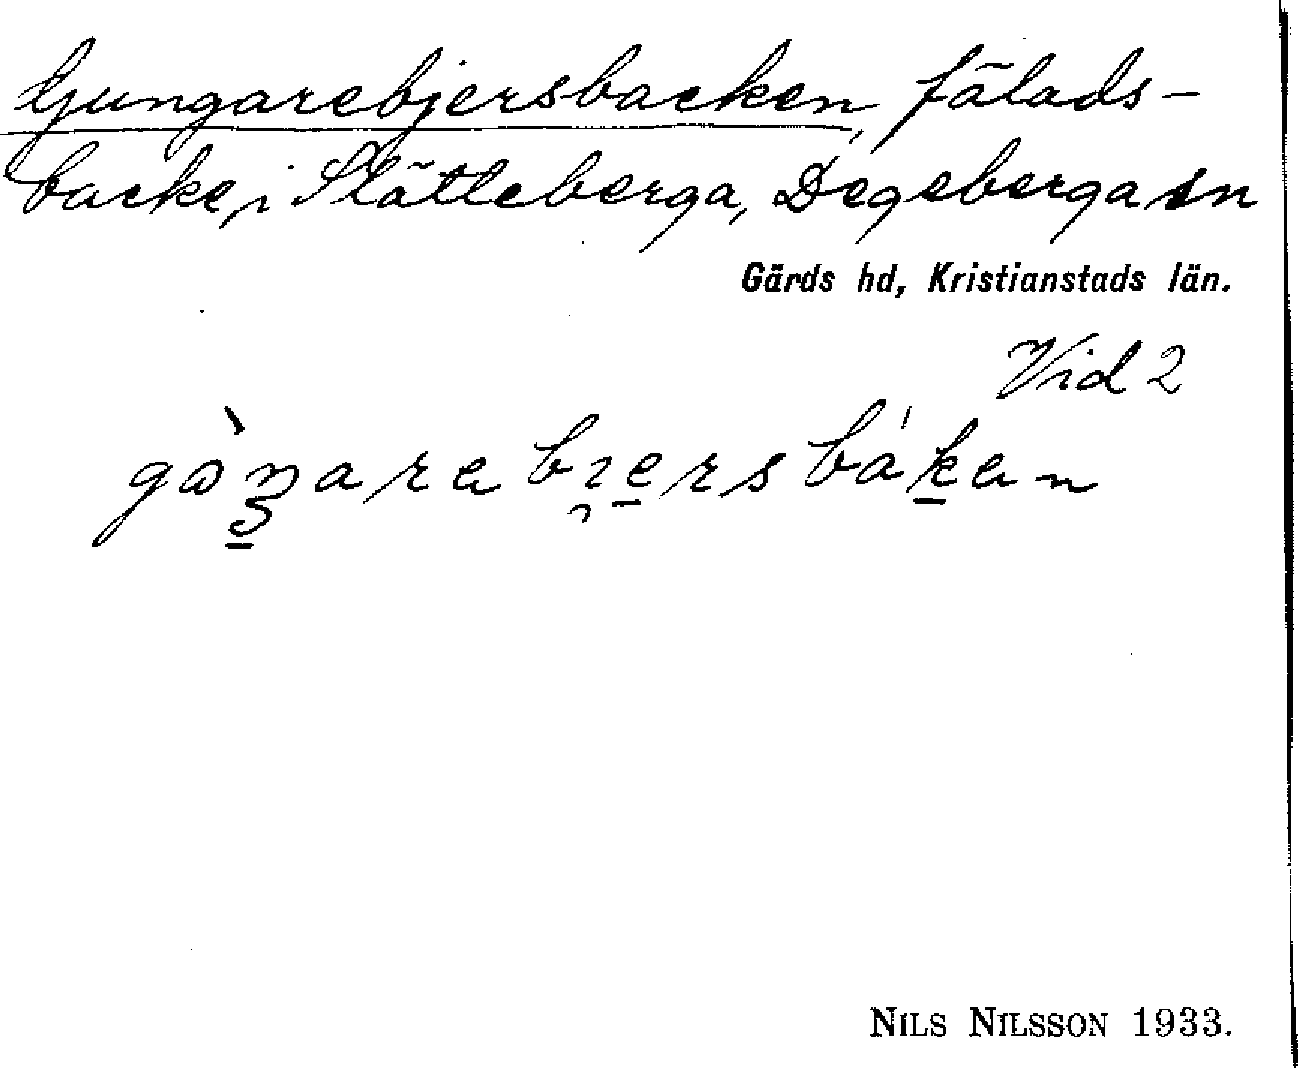 Ljungarebjersbacken, fälads-
backe, i Slätteberga, Degeberga sn
Gärds hd, Kristianstads län.
Vid 2
NILS NILSSON 1933.